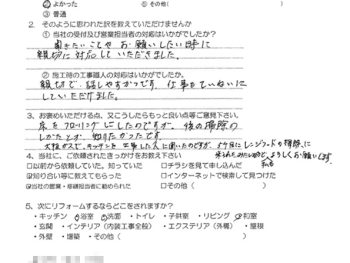 ②よかった ⑤その他( )
③普通
2. そのように思われた訳を教えていただけませんか
① 当社の受付及び営業担当者の対応はいかがでしたか？
聞きたいことやお願いしたい時に
親切に対応していただきました。
② 施工時の工事職人の対応はいかがでしたか？
親切で、話しやすかったです、仕事もていねいに
していただきました。
3. お褒めいただける点、又こうしたらもっと良い点等ご意見下さい。
床をフローリングにしたのですが、後の掃除の
しかたとか知りたかったです。
大阪ガスで、キッチンを工事した
4. 当社に、ご依頼されたきっかけをお教え下さい
□以前から依頼していた、知っていた □チラシを見て申し込んだ
☑知り合い等に教えてもらった □インターネットで検索して見つけた
☑当社の営業・経験担当者に勧められた □その他( )
5. 次にリフォームするならどこをされますか？
・キッチン ・浴室 ・洗面 ・トイレ ・子供室 ・リビング ・和室
・玄関 ・インテリア(内装工事全般) ・エクステリア(外構) ・屋根
・外壁 ・増築 ・その他( )